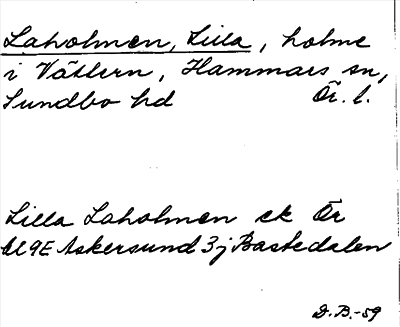 Laholmen, Lilla, holme
i Vättern, Hammars sn,
Sundbo hd Ör. l.
Lilla Laholmen ek Ör
9E Askersund 3j Bastedalen
D.B.-59